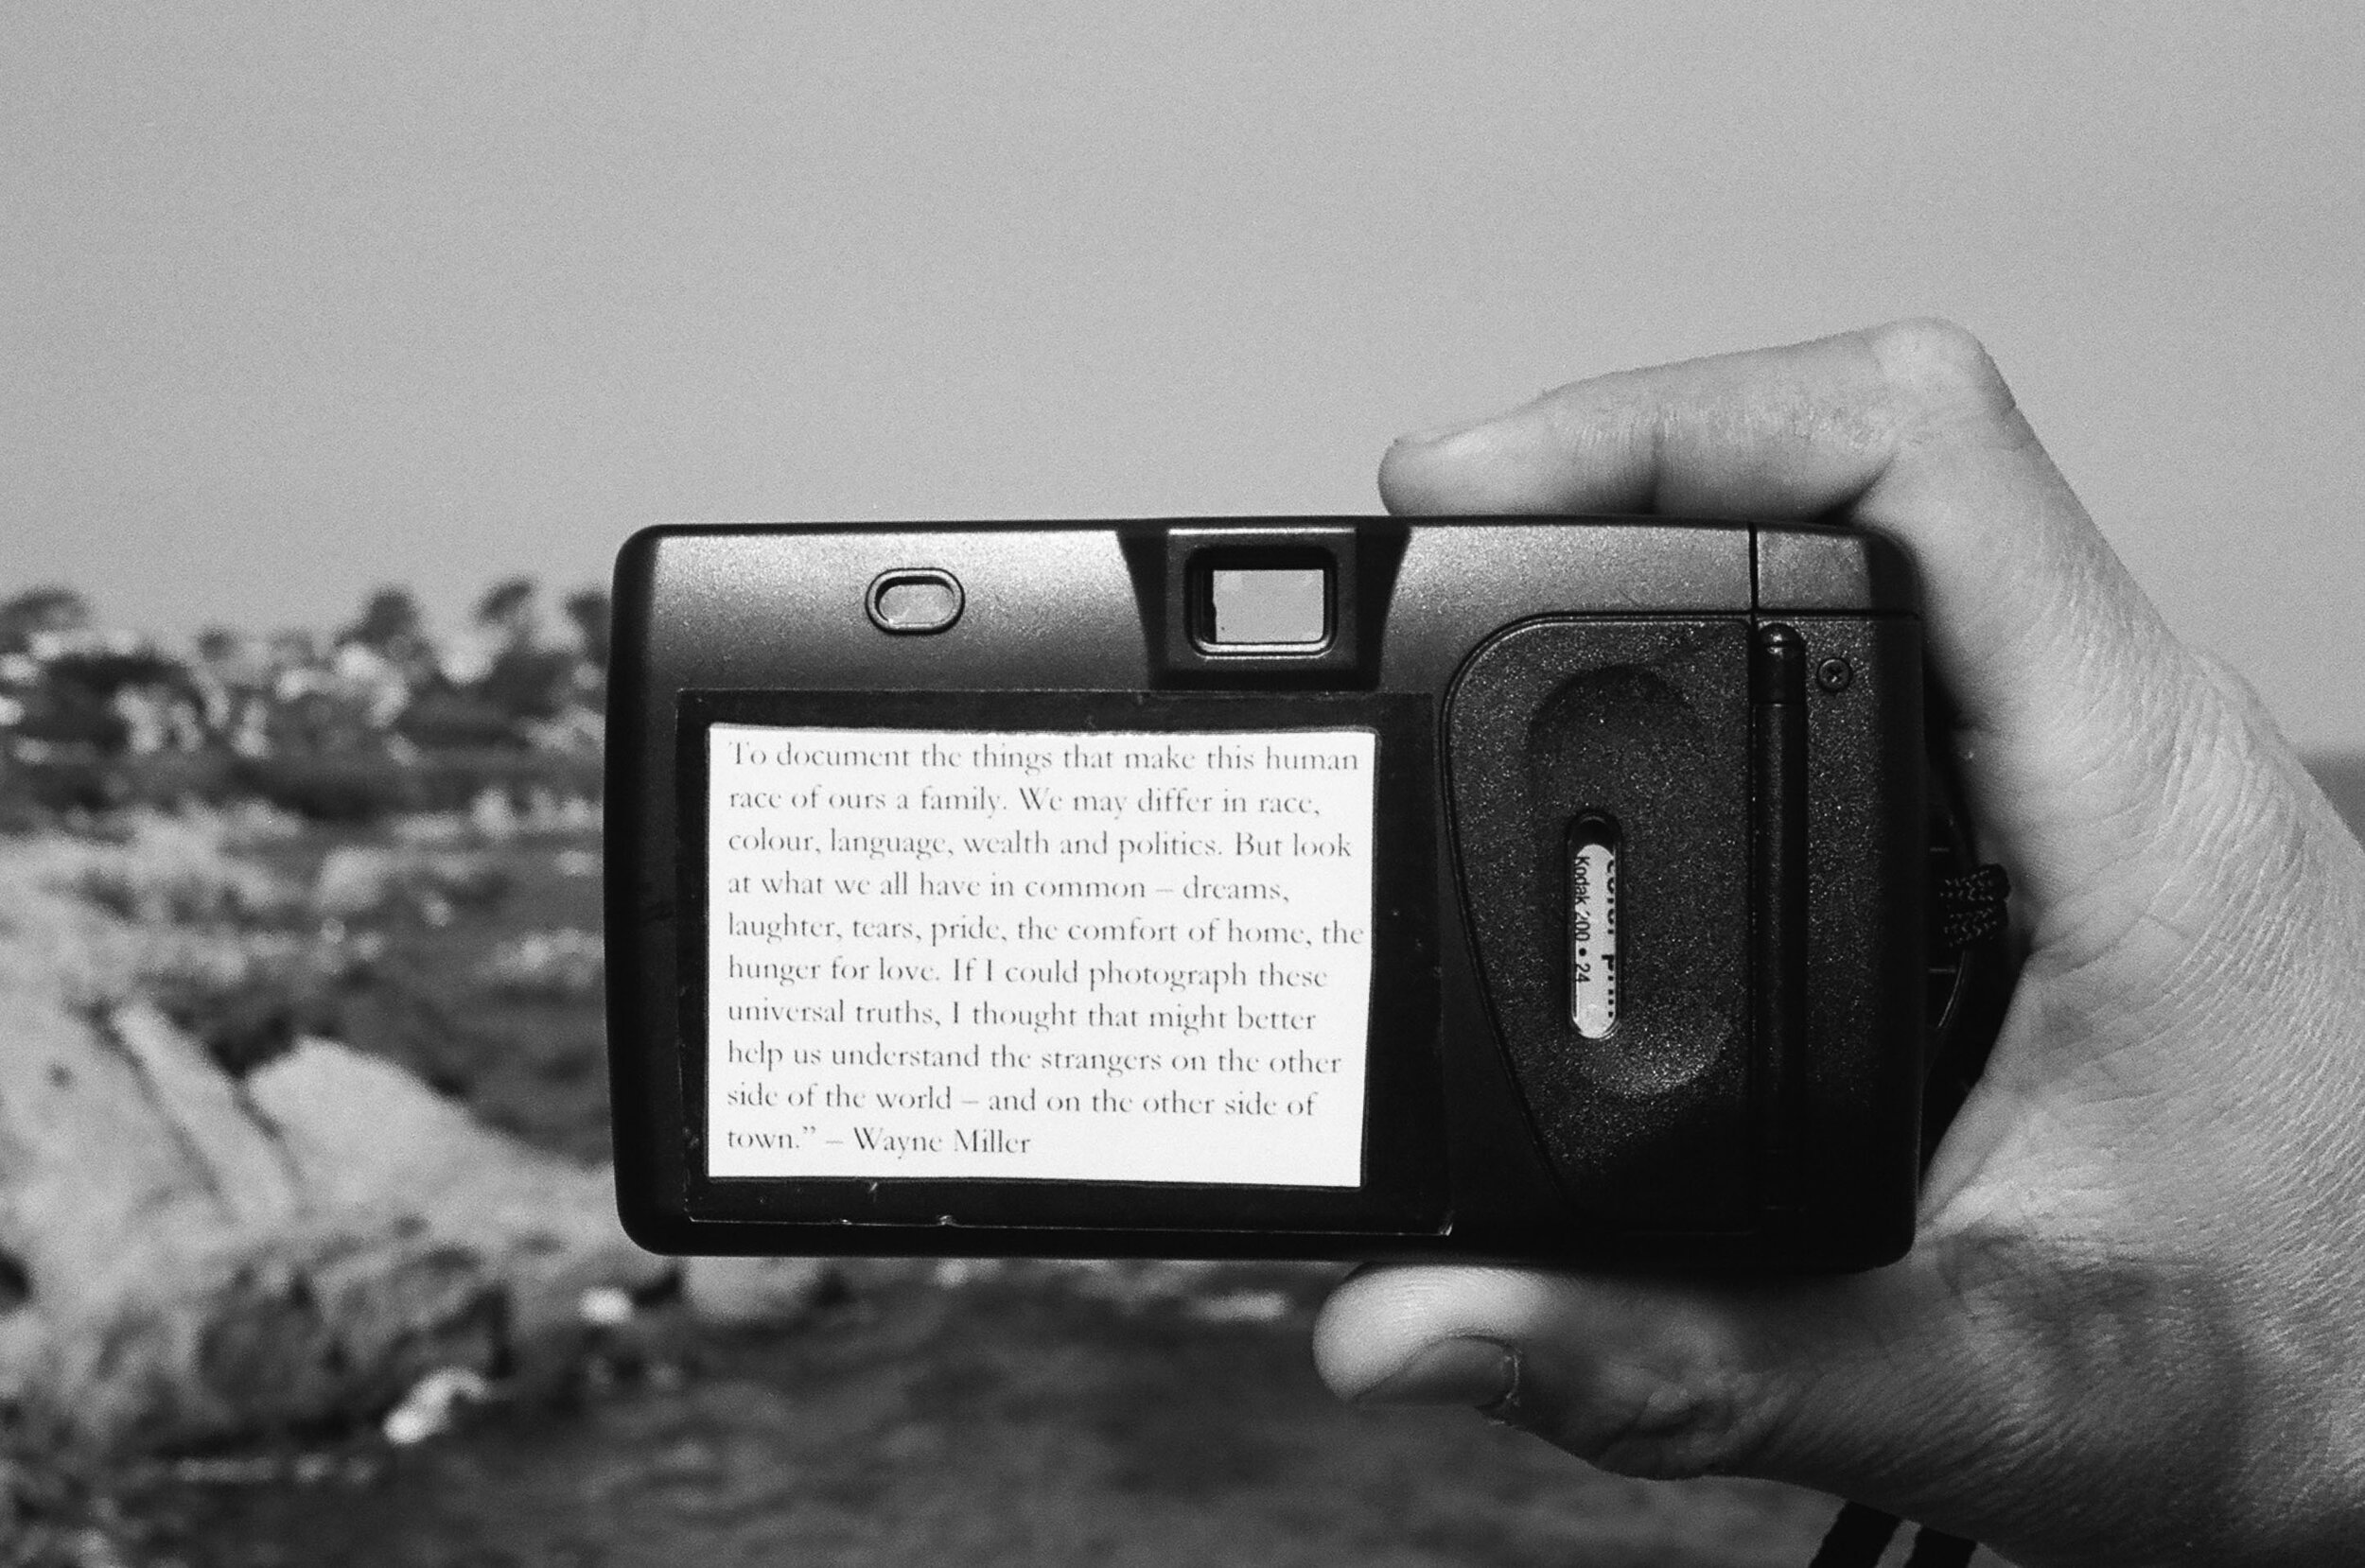 To document the things that make this human
race of ours a family. We may differ in race,
colour, language, wealth and politics. But look
at what we all have in common – dreams,
laughter, tears, pride, the comfort of home, the
hunger for love. If I could photograph these
universal truths, I thought that might better
help us understand the strangers on the other
side of the world – and on the other side of
town.” – Wayne Miller
Kodak 200 • 24